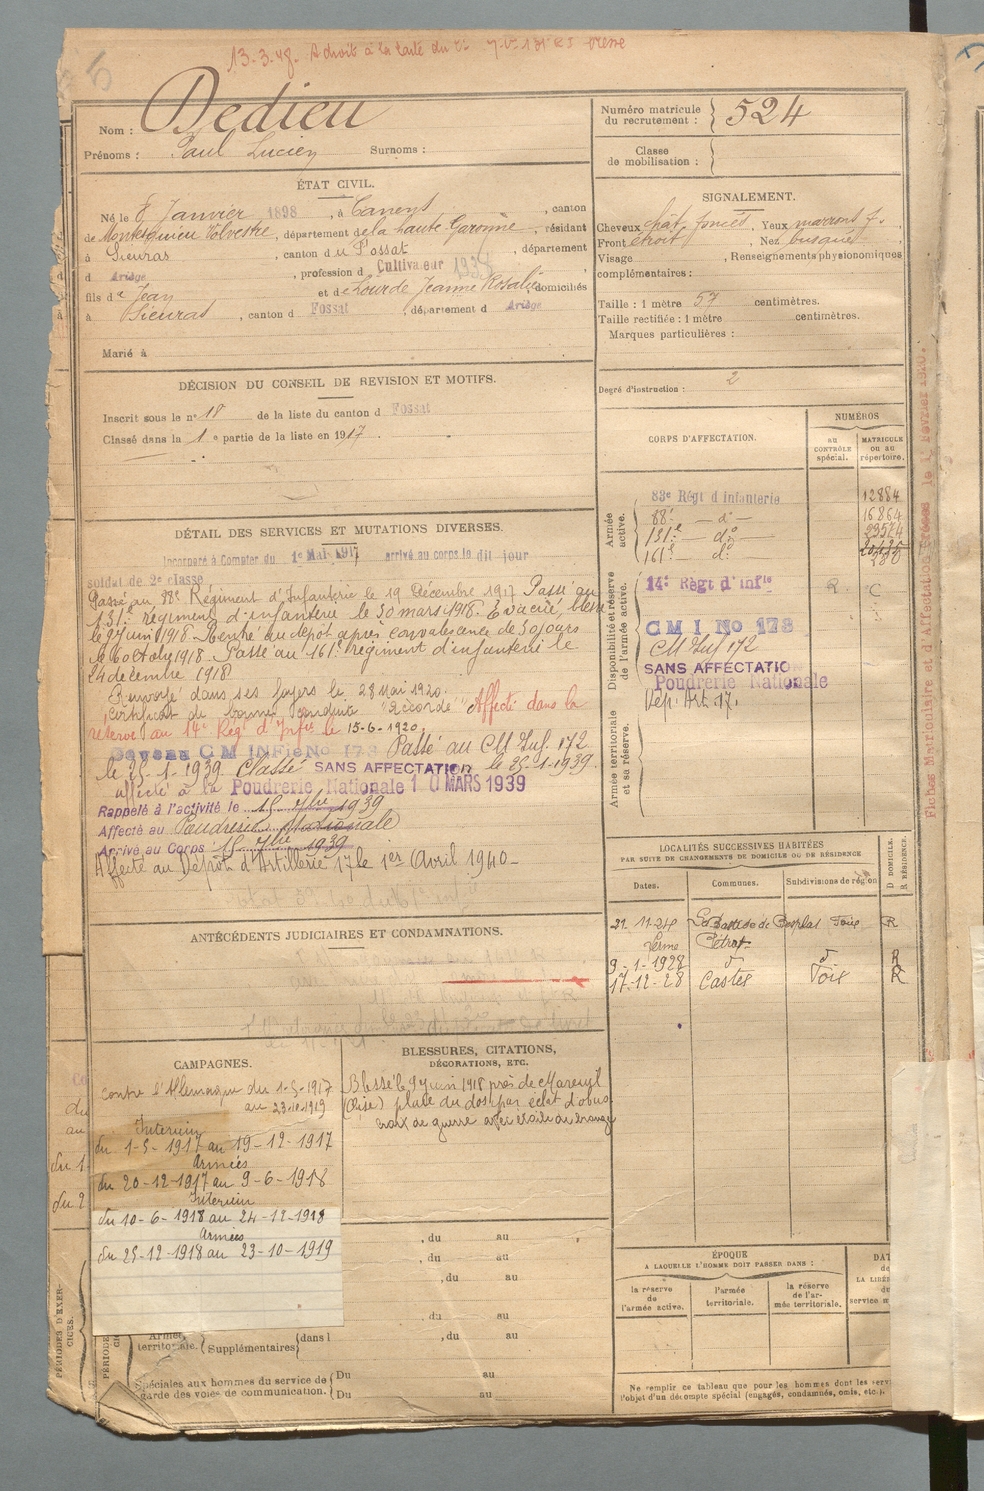 13.3.48. A droit à la carte du
Nom : Dedieu
Prénoms : Paul Lucien Surnoms :
Numéro matricule du recrutement : 524
Classe de mobilisation :
ÉTAT CIVIL.
Né le 8 Janvier 1898, à Canens, canton
de Montesquieu Volvestre, département de la haute Garonne, résidant
à Sieuras, canton du Fossat, département
d Ariège, profession d Cultivateur
fils de Jean et de Lourde Jeanne Rosalie domiciliés
à Sieuras, canton d Fossat, département d Ariège
Marié à
SIGNALEMENT.
Cheveux chat. foncés, Yeux marrons f.
Front étroit, Nez busqué
Visage , Renseignements physionomiques
complémentaires :
Taille : 1 mètre 57 centimètres.
Taille rectifiée : 1 mètre centimètres.
Marques particulières :
Degré d'instruction : 2
DÉCISION DU CONSEIL DE REVISION ET MOTIFS.
Inscrit sous le n° 18 de la liste du canton d Fossat
Classé dans la 1e partie de la liste en 1917.
DÉTAIL DES SERVICES ET MUTATIONS DIVERSES.
Incorporé à Compter du 1er Mai 1917 arrivé au corps le dit jour
soldat de 2e classe
Passé au 88e Régiment d'Infanterie le 19 Décembre 1917 Passé au
131e régiment d'infanterie le 30 mars 1918. Evacué blessé
le 9 juin 1918 Rentré au dépôt après convalescence de 30 jours
le 6 octobre 1918. Passé au 161e régiment d'infanterie le
24 décembre 1918
Renvoyé dans ses foyers le 28 Mai 1920.
Certificat de bonne conduite "Accordé" Affecté dans la
réserve au 14e Régt d'Infie le 15-6-1920.
CM INFie No 178 Passé au CM Inf. 172
le 25-1-1939 Classé SANS AFFECTATION le 25-1-1939.
affecté à la Poudrerie Nationale 10 MARS 1939
Rappelé à l'activité le 15 7bre 1939
Affecté au Poudrerie Nationale
Arrivé au Corps 15 7bre 1939
Affecté au Dépôt d'Artillerie 17 le 1er Avril 1940
CORPS D'AFFECTATION.
NUMÉROS
au CONTRÔLE spécial.
MATRICULE ou au répertoire.
Armée active.
83e Régt d'Infanterie 12884
88e — do — 16864
131e — do 23574
161e do
Disponibilité et réserve de l'armée active.
14e Régt d'Infie R. C
CMI No 178
CM Inf 172
SANS AFFECTATION
Poudrerie Nationale
Dép. Art. 17.
Armée territoriale et sa réserve.
LOCALITÉS SUCCESSIVES HABITÉES
PAR SUITE DE CHANGEMENTS DE DOMICILE OU DE RÉSIDENCE
Dates. Communes. Subdivisions de région
D DOMICILE. R RÉSIDENCE.
21. 11-24 La Bastide de Besplas Foix R
9-1-1928 R
17-12-28 Castex Foix R
ANTÉCÉDENTS JUDICIAIRES ET CONDAMNATIONS.
CAMPAGNES.
Contre l'Allemagne du 1-5-1917
au 23-10-1919
Intérieur
du 1-5-1917 au 19-12-1917
Armées
du 20-12-1917 au 9-6-1918
Intérieur
du 10-6-1918 au 24-12-1918
Armées
du 25-12-1918 au 23-10-1919
BLESSURES, CITATIONS,
DÉCORATIONS, ETC.
Blessé le 9 juin 1918 près de Mareuil
(Oise) plaie du dos par éclat d'obus
croix de guerre avec étoile de bronze
PÉRIODES D'EXERCICES.
, du au
, du au
, du au
, du au
Armée territoriale. Supplémentaires dans l , du au
Spéciales aux hommes du service de garde des voies de communication.
Du au
Du au
ÉPOQUE
A LAQUELLE L'HOMME DOIT PASSER DANS :
la réserve de l'armée active.
l'armée territoriale.
la réserve de l'armée territoriale.
Ne remplir ce tableau que pour les hommes dont les
l'objet d'un décompte spécial (engagés, condamnés, omis, etc.).